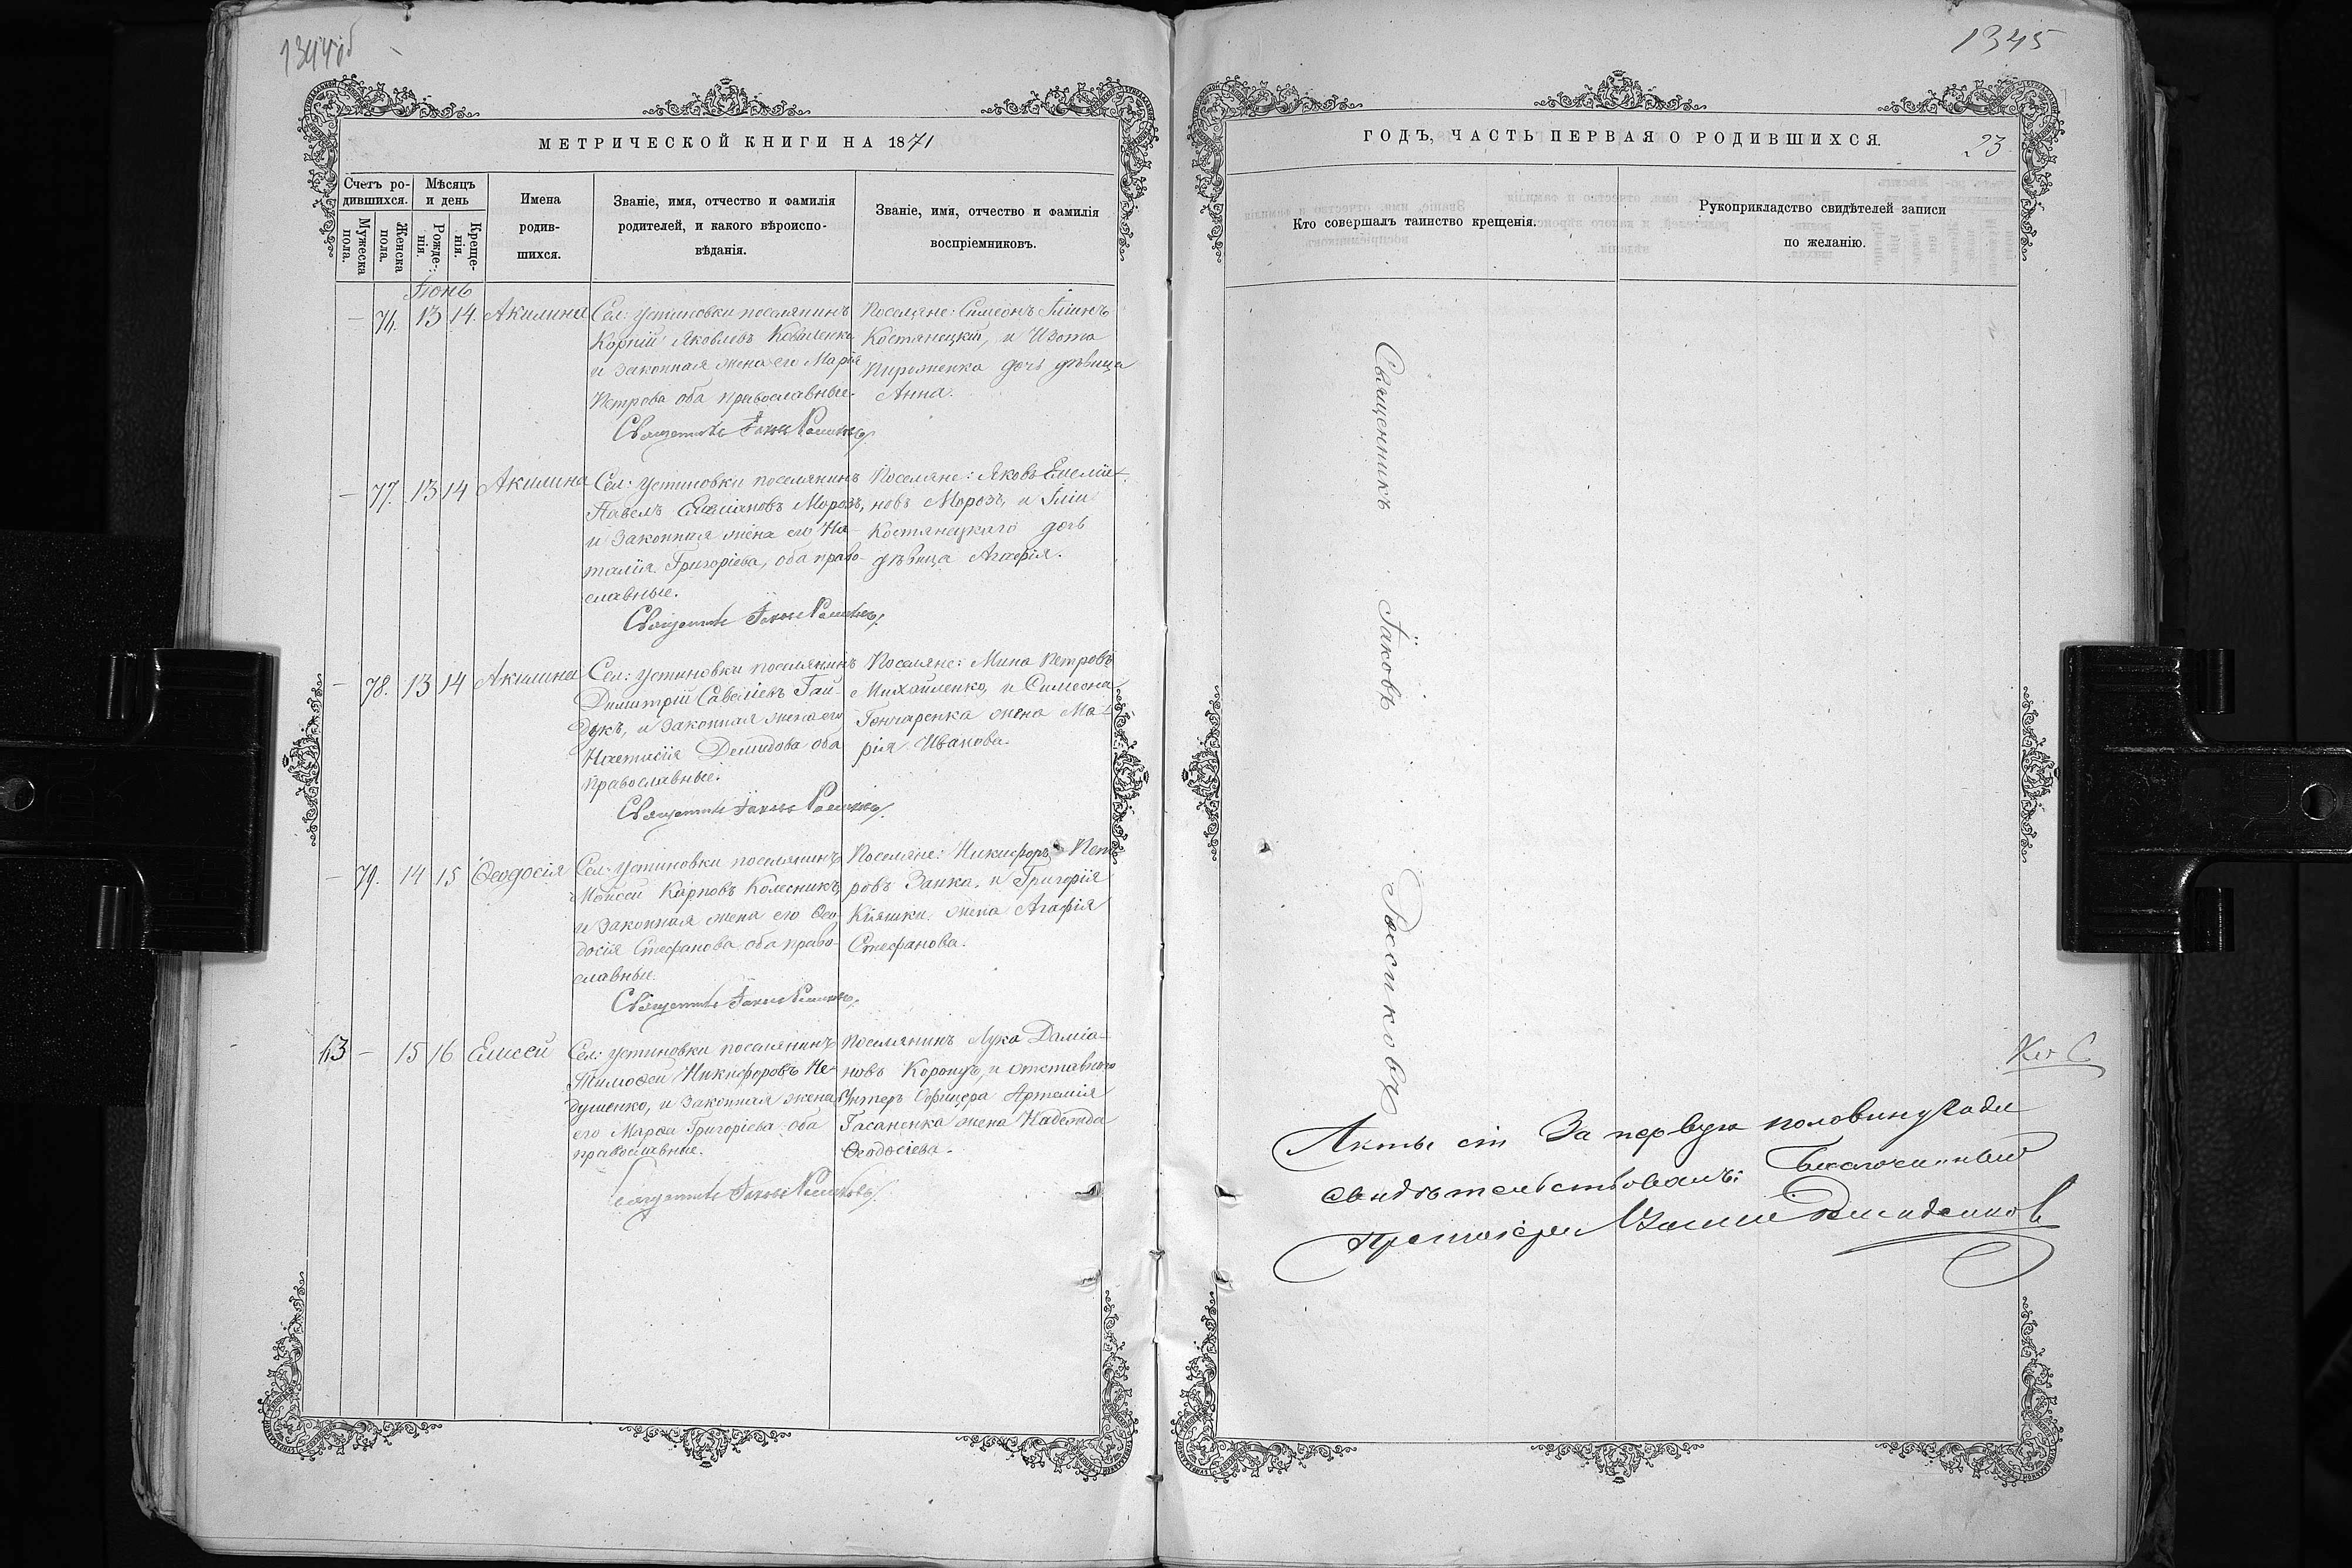 1344об
МЕТРИЧЕСКОЙ КНИГИ НА 1871
Счетъ ро-
дившихся.
Мѣсяцъ
и день
Мужеска
пола.
Женска
пола.
Рожде-
нія.
Креще-
нія.
Имена
родив-
шихся.
Званіе, имя, отчество и фамилія
родителей, и какого вѣроиспо-
вѣданія.
Званіе, имя, отчество и фамилія
воспріемниковъ.
Іюнь
— 76. 13 14. Акилина
Сел: Устиновки поселянинъ
Корній Яковлевъ Коваленко
и законная жена его Марія
Петрова оба православные.
Священникъ Іаковъ
Поселяне: Симеонъ Іліинъ
Костянецкій, и Изота
Пироженка дочь дѣвица
Анна.
— 77. 13 14 Акилина
Сел: Устиновки поселянинъ
Павелъ Емеліановъ Морозъ,
и законная жена его На-
талія Григоріева, оба право-
славные.
Священникъ Іаковъ
Поселяне: Яковъ Емелія-
новъ Морозъ, и Іліи
Костянецкаго дочь
дѣвица Агафія.
— 78. 13 14 Акилина
Сел: Устиновки поселянинъ
Димитрій Савеліевъ Гай-
дукъ, и законная жена его
Настасія Демидова оба
православные.
Священникъ Іаковъ
Поселяне: Мина Петровъ
Михайленко, и Симеона
Гончаренка жена Ма-
рія Иванова.
— 79. 14 15 Ѳеодосія
Сел: Устиновки поселянинъ
Моисей Карповъ Колесникъ,
и законная жена его Ѳео-
досія Стефанова оба право-
славные.
Священникъ Іаковъ
Поселяне: Никифоръ Пет-
ровъ Заика, и Григорія
Кіяшки жена Агафія
Стефанова.
63 — 15 16 Елисей
Сел: Устиновки поселянинъ
Тимоѳей Никифоровъ Не-
душенко, и законная жена
его Марѳа Григоріева оба
православные.
Священникъ Іаковъ
Поселянинъ Лука Даміа-
новъ Коропъ, и отставнаго
Унтеръ Офицера Артемія
Гасаненка жена Надежда
Ѳеодосіева.
1345
ГОДЪ, ЧАСТЬ ПЕРВАЯ О РОДИВШИХСЯ.
23
Кто совершалъ таинство крещенія.
Рукоприкладство свидѣтелей записи
по желанію.
Священникъ Іаковъ
Акты за первую половину года
свидѣтельствовалъ: Благочинный
Протоіерей